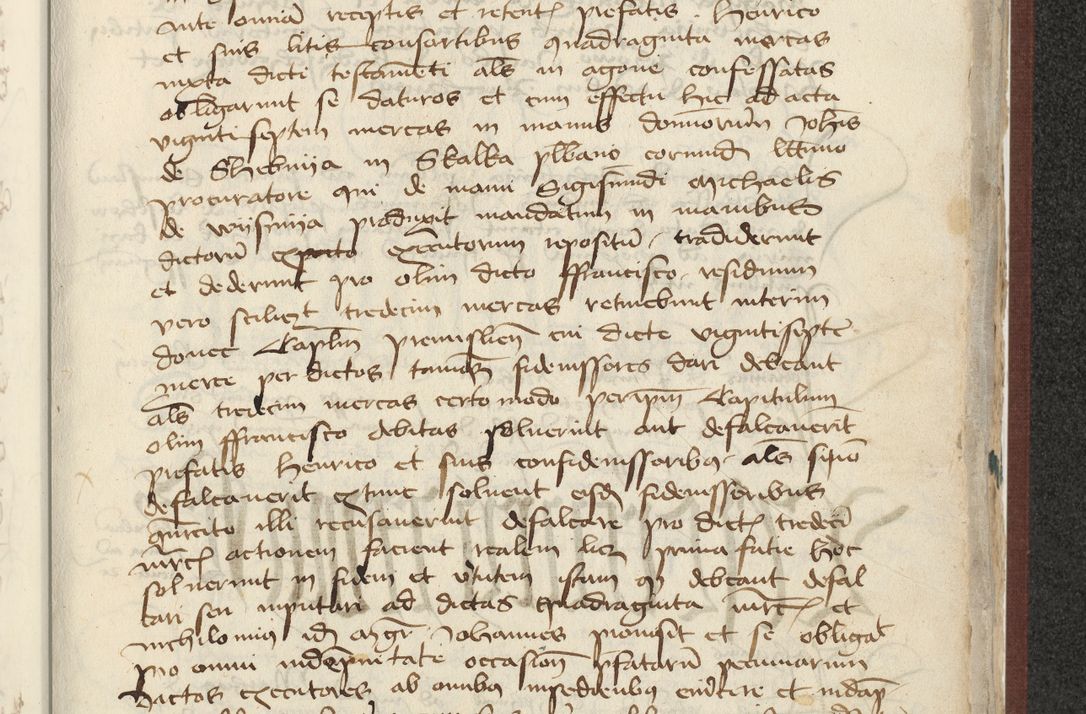 Ante omnia receptis et retent prefatis Henrico
et suis litis consortibus quadraginta mercas
iuxta dicti testamenti als in agone confessatas
obligarunt se daturos et cum effectu hic ad acta
viginti septem mercas in manus dominorum Johis
de Skalka plbano eorundem
procuratore qui de manu Sigismundi Michaelis
de produxit mandatum in manibus
dictoru executorum repositu tradiderunt
et dederunt pro olim dicto ffrancisco residuum
vero scilicet tredecim mercas retinebunt interim
donec Caplm Premislien cui dicte vigintisepte
merce per dictos fideiussores dari debeant
als tredecim mercas certo modo per ipm Capitulum
olim ffrancisco debitas solverint aut defalcaverit
prefatis Henrico et suis confideiussoribus als si
defalcaverit extunc solvent eisdem fideiussoribus
illi recusaverint defalcare pro dict tredeci
mrc actionem facient realem licet prima facie hoc
solverint in fidem et debeant defal
cari seu inputari ad dictas quadraginta mrc et
nichilominus idem mgr Johannes promisit et se obligat
pro omni indempnitate occasion pfataru pecuniarum
dictos executores ab omnibus impedientibus evincere et indap